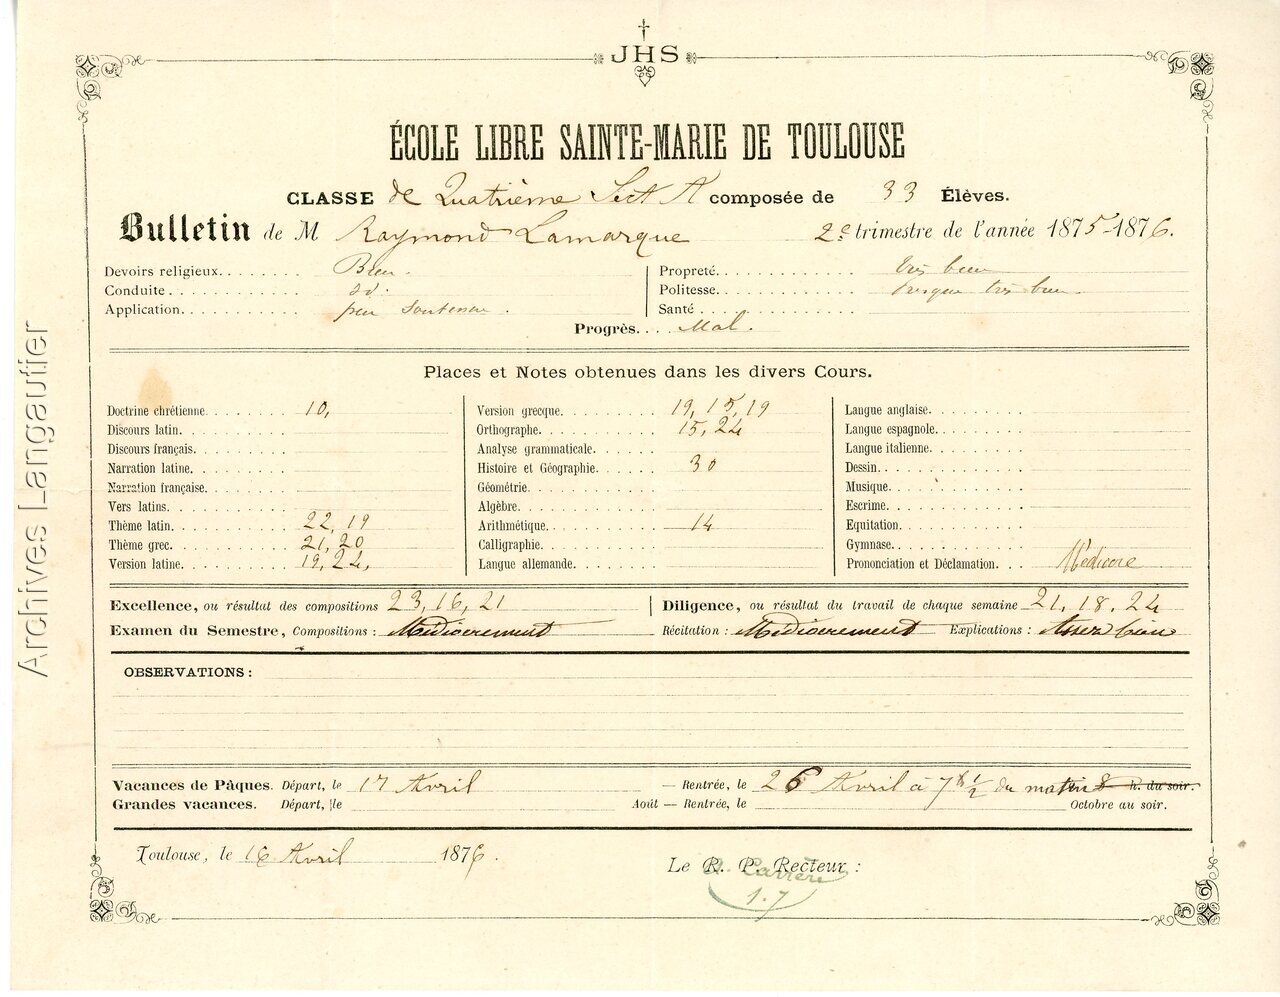 JHS
ÉCOLE LIBRE SAINTE-MARIE DE TOULOUSE
CLASSE de Quatrième Sect A composée de 33 Élèves.
Bulletin de M Raymond Lamarque 2e trimestre de l'année 1875-1876.
Devoirs religieux........ Bien.
Conduite............ id.
Application........... peu soutenue.
Propreté............ très bien
Politesse............ presque très bien.
Santé..............
Progrès.... Mal.
Places et Notes obtenues dans les divers Cours.
Doctrine chrétienne......... 10,
Discours latin..........
Discours français.........
Narration latine.........
Narration française........
Vers latins...........
Thème latin........... 22, 19
Thème grec.......... 21, 20
Version latine.......... 19, 24,
Version grecque......... 19, 15, 19
Orthographe........... 15, 24
Analyse grammaticale......
Histoire et Géographie...... 30
Géométrie............
Algèbre.............
Arithmétique.......... 14
Calligraphie...........
Langue allemande.......
Langue anglaise.........
Langue espagnole........
Langue italienne.........
Dessin..............
Musique............
Escrime.............
Equitation...........
Gymnase............
Prononciation et Déclamation.... Médiocre
Excellence, ou résultat des compositions 23, 16, 21
Diligence, ou résultat du travail de chaque semaine 21, 18, 24
Examen du Semestre, Compositions : Médiocrement Récitation : Médiocrement Explications : Assez bien
OBSERVATIONS :
Vacances de Pâques. Départ, le 17 Avril — Rentrée, le 26 Avril à 7h 1/2 du matin 8 h. du soir.
Grandes vacances. Départ, le Août — Rentrée, le Octobre au soir.
Toulouse, le 16 Avril 1876.
Le R. P. Recteur :
Carrère
Archives Langautier